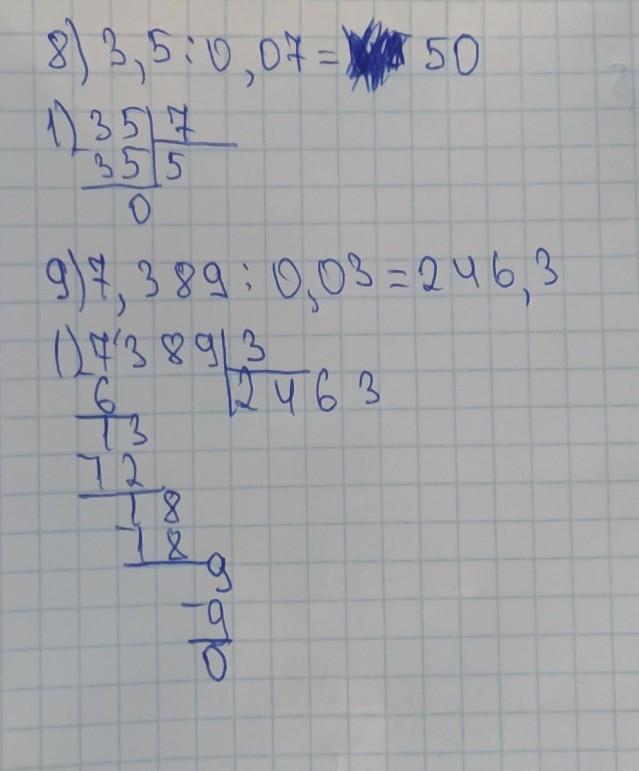 8) 3,5 : 0,07 = 50
1) 35 | 7
35 | 5
0
9) 7,389 : 0,03 = 246,3
1) 7389 | 3
6 | 2463
13
12
18
18
9
-9
0